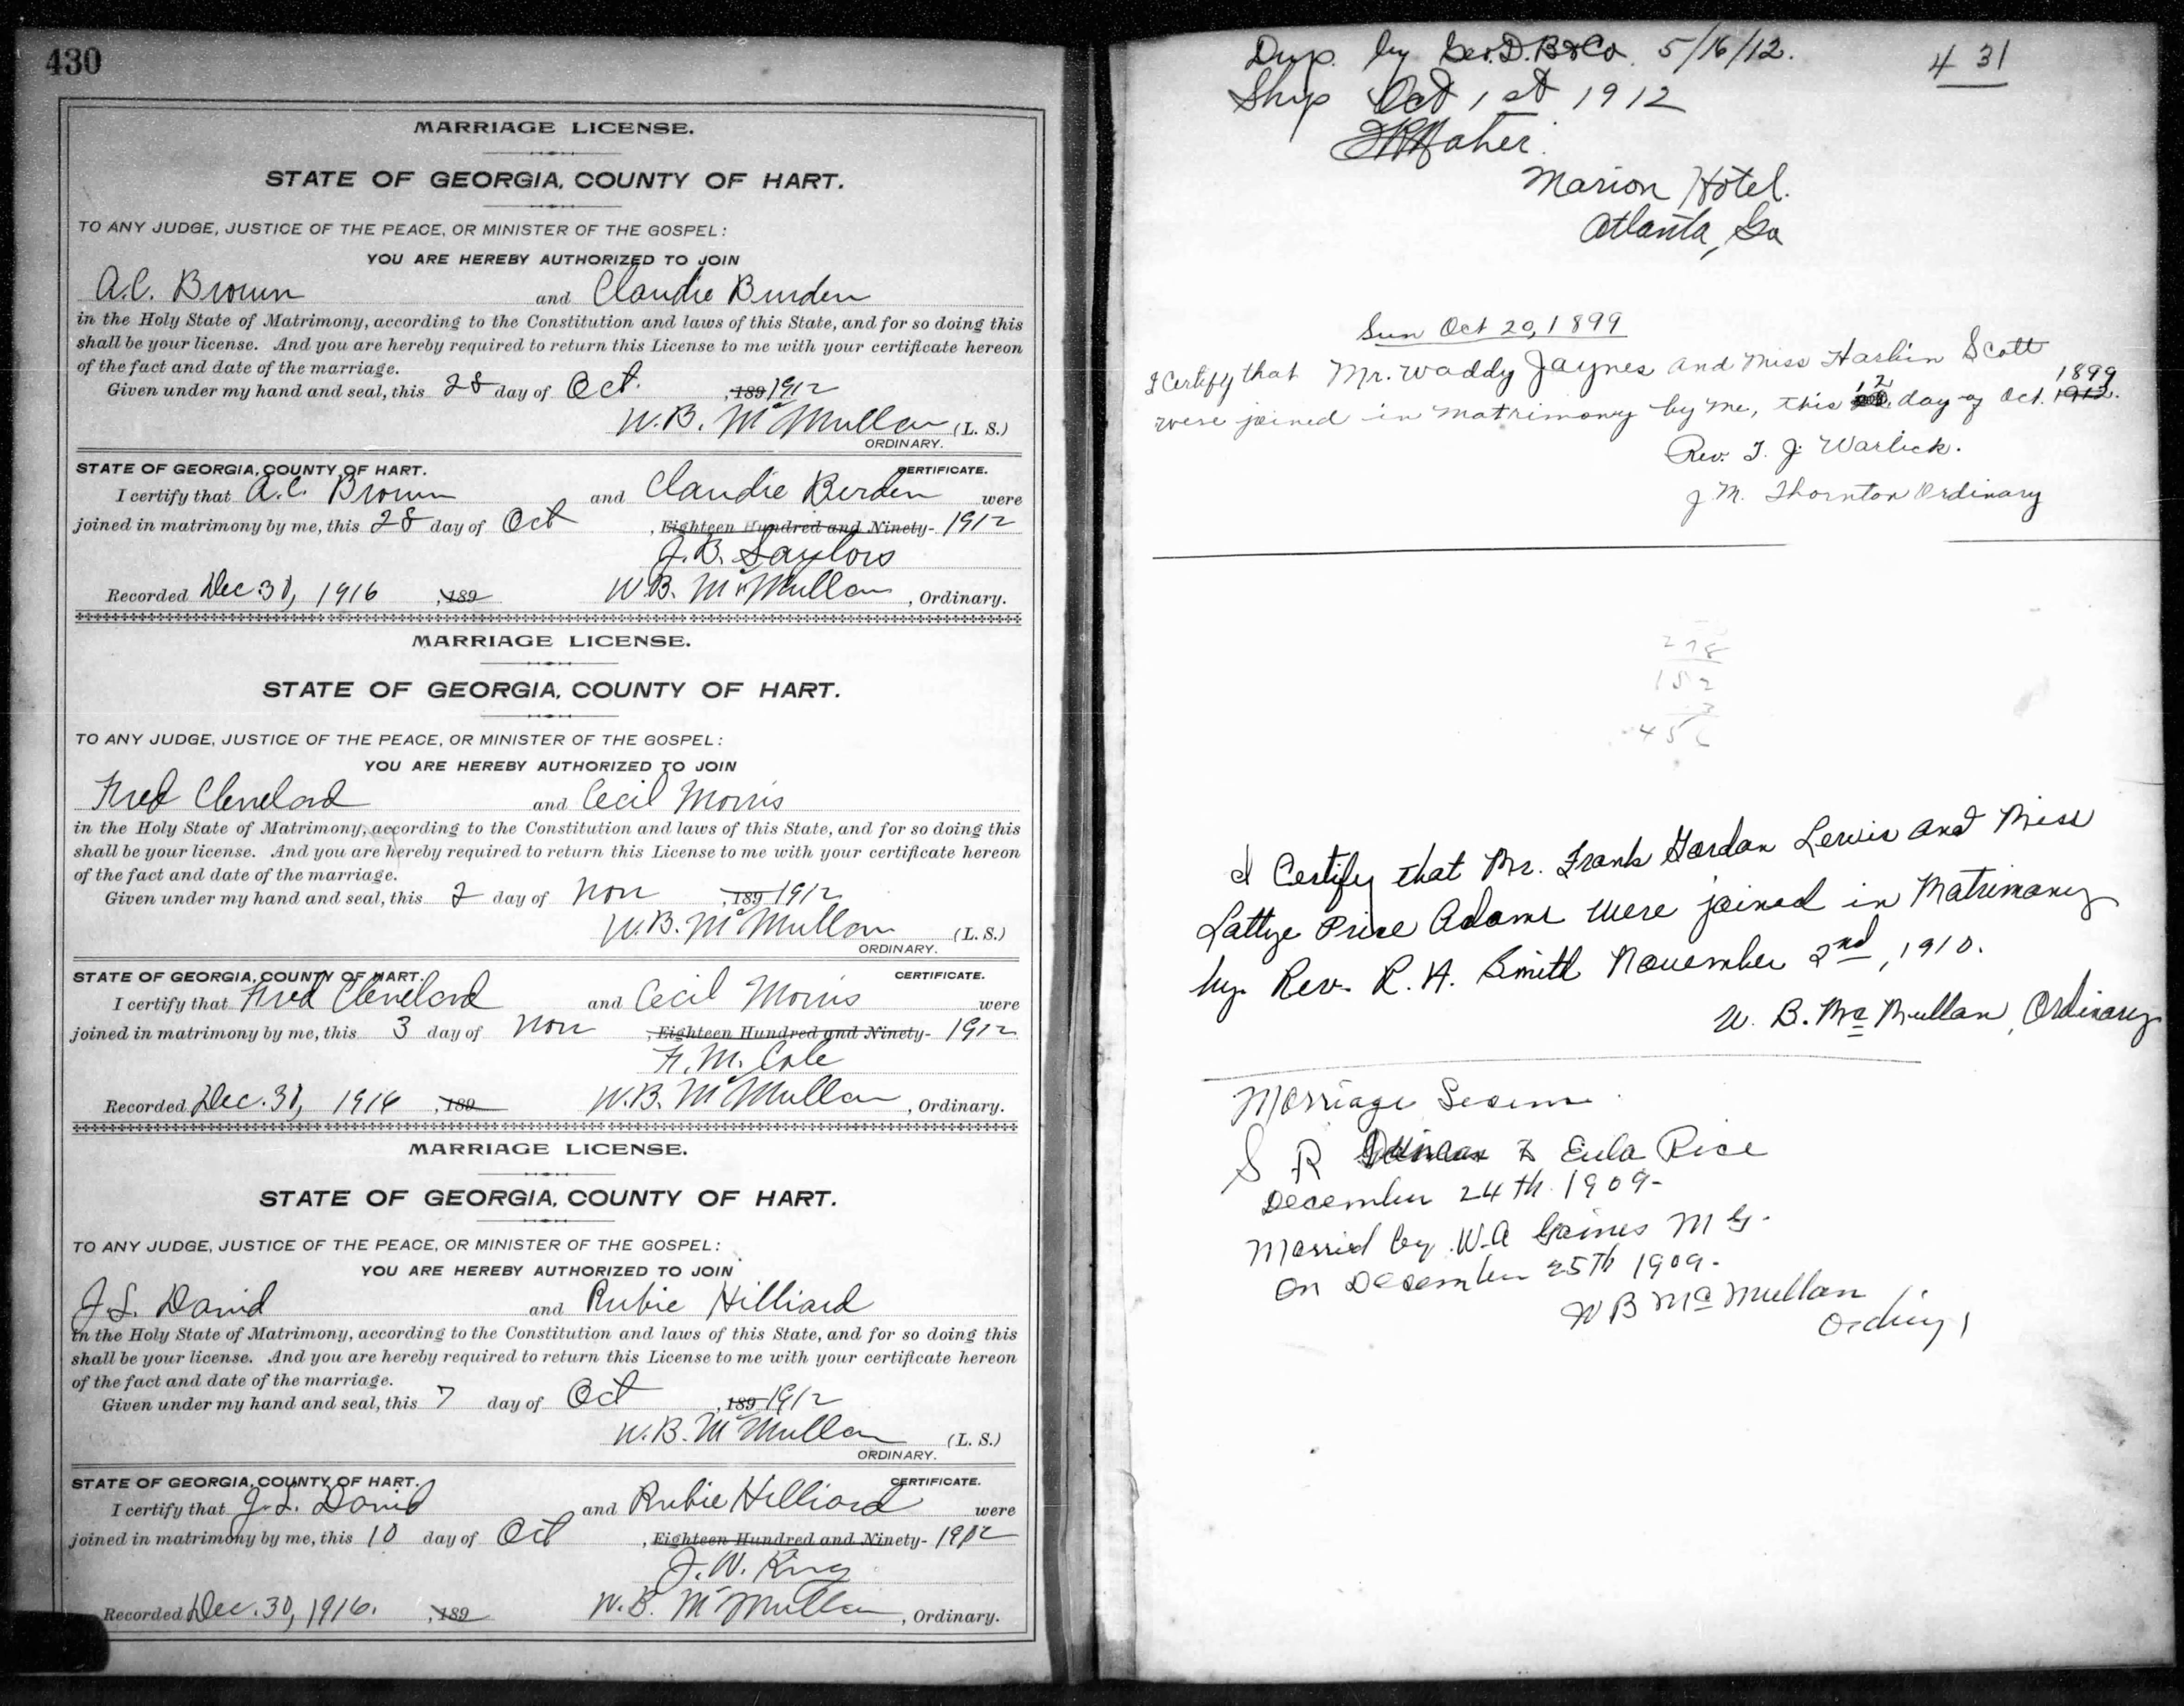 430
MARRIAGE LICENSE.
STATE OF GEORGIA, COUNTY OF HART.
TO ANY JUDGE, JUSTICE OF THE PEACE, OR MINISTER OF THE GOSPEL:
YOU ARE HEREBY AUTHORIZED TO JOIN
A.C. Brown and Claudie Burden
in the Holy State of Matrimony, according to the Constitution and laws of this State, and for so doing this
shall be your license. And you are hereby required to return this License to me with your certificate hereon
of the fact and date of the marriage.
Given under my hand and seal, this 28 day of Oct. , 189 1912
W.B. McMullan (L. S.)
ORDINARY.
STATE OF GEORGIA, COUNTY OF HART. CERTIFICATE.
I certify that A.C. Brown and Claudie Burden were
joined in matrimony by me, this 28 day of Oct , Eighteen Hundred and Ninety- 1912
J.B. Saylors
Recorded Dec 30, 1916 , 189 W.B. McMullan , Ordinary.
MARRIAGE LICENSE.
STATE OF GEORGIA, COUNTY OF HART.
TO ANY JUDGE, JUSTICE OF THE PEACE, OR MINISTER OF THE GOSPEL:
YOU ARE HEREBY AUTHORIZED TO JOIN
Fred Cleveland and Cecil Morris
in the Holy State of Matrimony, according to the Constitution and laws of this State, and for so doing this
shall be your license. And you are hereby required to return this License to me with your certificate hereon
of the fact and date of the marriage.
Given under my hand and seal, this 2 day of Nov , 189 1912
W.B. McMullan (L. S.)
ORDINARY.
STATE OF GEORGIA, COUNTY OF HART. CERTIFICATE.
I certify that Fred Cleveland and Cecil Morris were
joined in matrimony by me, this 3 day of Nov , Eighteen Hundred and Ninety- 1912
F.M. Cole
Recorded Dec. 30, 1916 , 189 W.B. McMullan , Ordinary.
MARRIAGE LICENSE.
STATE OF GEORGIA, COUNTY OF HART.
TO ANY JUDGE, JUSTICE OF THE PEACE, OR MINISTER OF THE GOSPEL:
YOU ARE HEREBY AUTHORIZED TO JOIN
J.L. David and Rubie Hilliard
in the Holy State of Matrimony, according to the Constitution and laws of this State, and for so doing this
shall be your license. And you are hereby required to return this License to me with your certificate hereon
of the fact and date of the marriage.
Given under my hand and seal, this 7 day of Oct , 189 1912
W.B. McMullan (L. S.)
ORDINARY.
STATE OF GEORGIA, COUNTY OF HART. CERTIFICATE.
I certify that J.L. David and Rubie Hilliard were
joined in matrimony by me, this 10 day of Oct , Eighteen Hundred and Ninety- 1912
J.W. King
Recorded Dec. 30, 1916. , 189 W.B. McMullan , Ordinary.
Dup. by Geo. D. B & Co. 5/16/12.
431
Ship Oct 1st 1912
Maher.
Marion Hotel.
Atlanta, Ga
Sun Oct 29, 1899
I Certify that Mr. Waddy Jaynes and Miss Harbin Scott
were joined in matrimony by me, this 12 day of Oct. 1912. 1899
Rev. T. J. Warlick.
J. M. Thornton Ordinary
278
152
3
456
I Certify that Mr. Frank Gordan Lewis and Miss
Lattye Price Adams were joined in Matrimony
by Rev. R. A. Smith November 2nd, 1910.
W. B. McMullan, Ordinary
Marriage
S R Duncan & Eula Rice
December 24th 1909-
Married by W.A Gaines M G.
On December 25th 1909.
W B McMullan